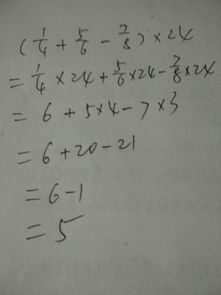 (1/4 + 5/6 - 7/8) × 24
= 1/4 × 24 + 5/6 × 24 - 7/8 × 24
= 6 + 5 × 4 - 7 × 3
= 6 + 20 - 21
= 6 - 1
= 5